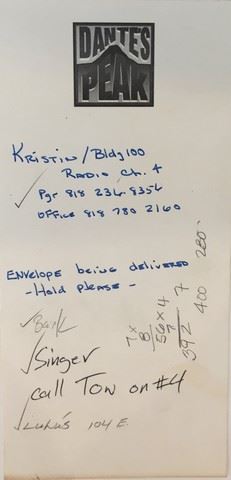 DANTE'S
PEAK
KRISTIN / Bldg 100
RADIO Ch. 4
Pgr 818 236-8356
OFFICE 818 780 2160
ENVELOPE being delivered
- Hold please -
Bank
Singer
call Tow on #4
Luku's 104 E.
7 x
8
56 x 4
7
392 7
400
280